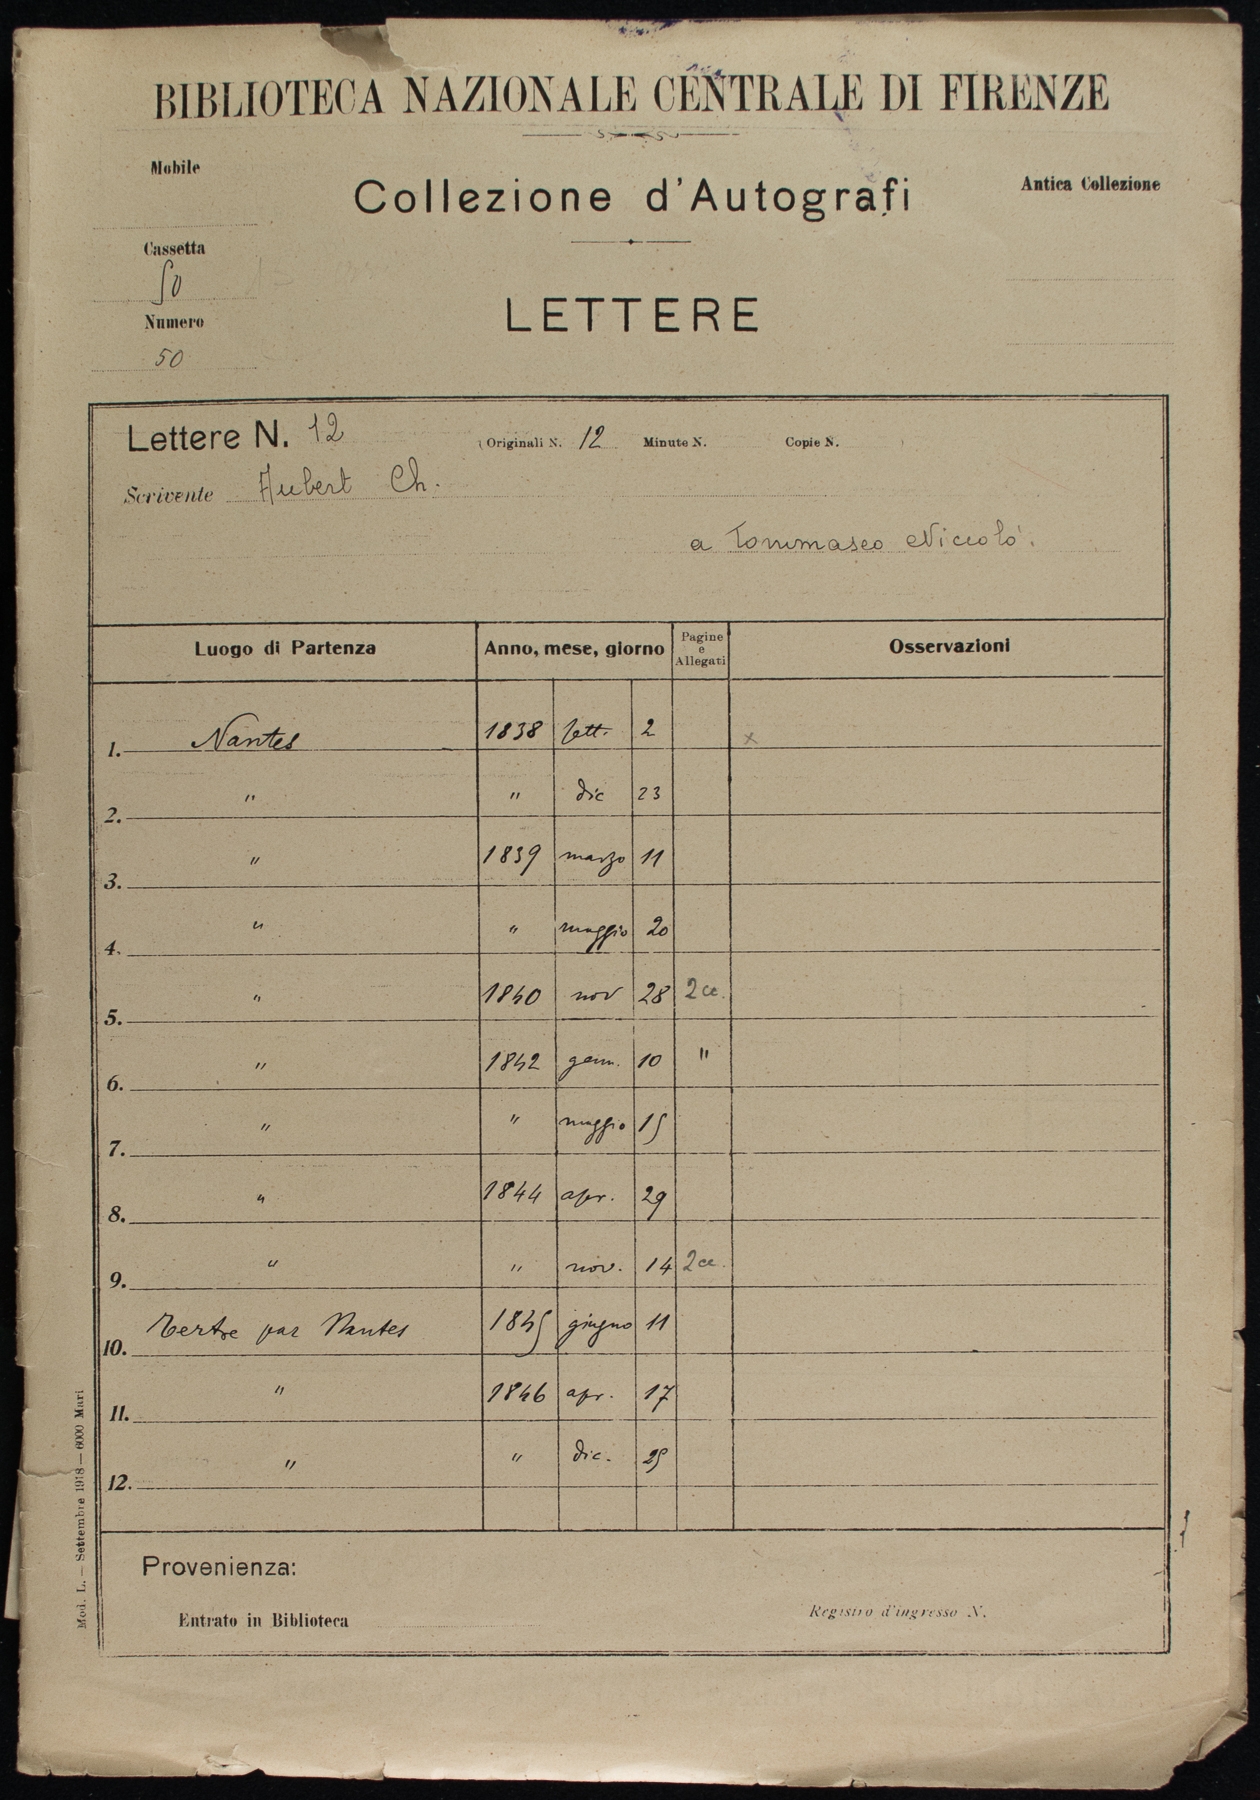 BIBLIOTECA NAZIONALE CENTRALE DI FIRENZE
Mobile
Collezione d'Autografi
Antica Collezione
Cassetta
50
LETTERE
Numero
50
Lettere N. 12 Originali N. 12 Minute N. Copie N.
Scrivente Aubert Ch.
a Tommaseo Niccolò.
Luogo di Partenza Anno, mese, giorno Pagine e Allegati Osservazioni
1. Nantes 1838 sett. 2 x
2. " " dic 23
3. " 1839 marzo 11
4. " " maggio 20
5. " 1840 nov 28 2 cc.
6. " 1842 genn. 10 "
7. " " maggio 15
8. " 1844 apr. 29
9. " " nov. 14 2 cc.
10. Tertre par Nantes 1845 giugno 11
11. " 1846 apr. 17
12. " " dic. 25
Provenienza:
Entrato in Biblioteca Registro d'ingresso N.
Mod. L. — Settembre 1918 — 6000 Mari